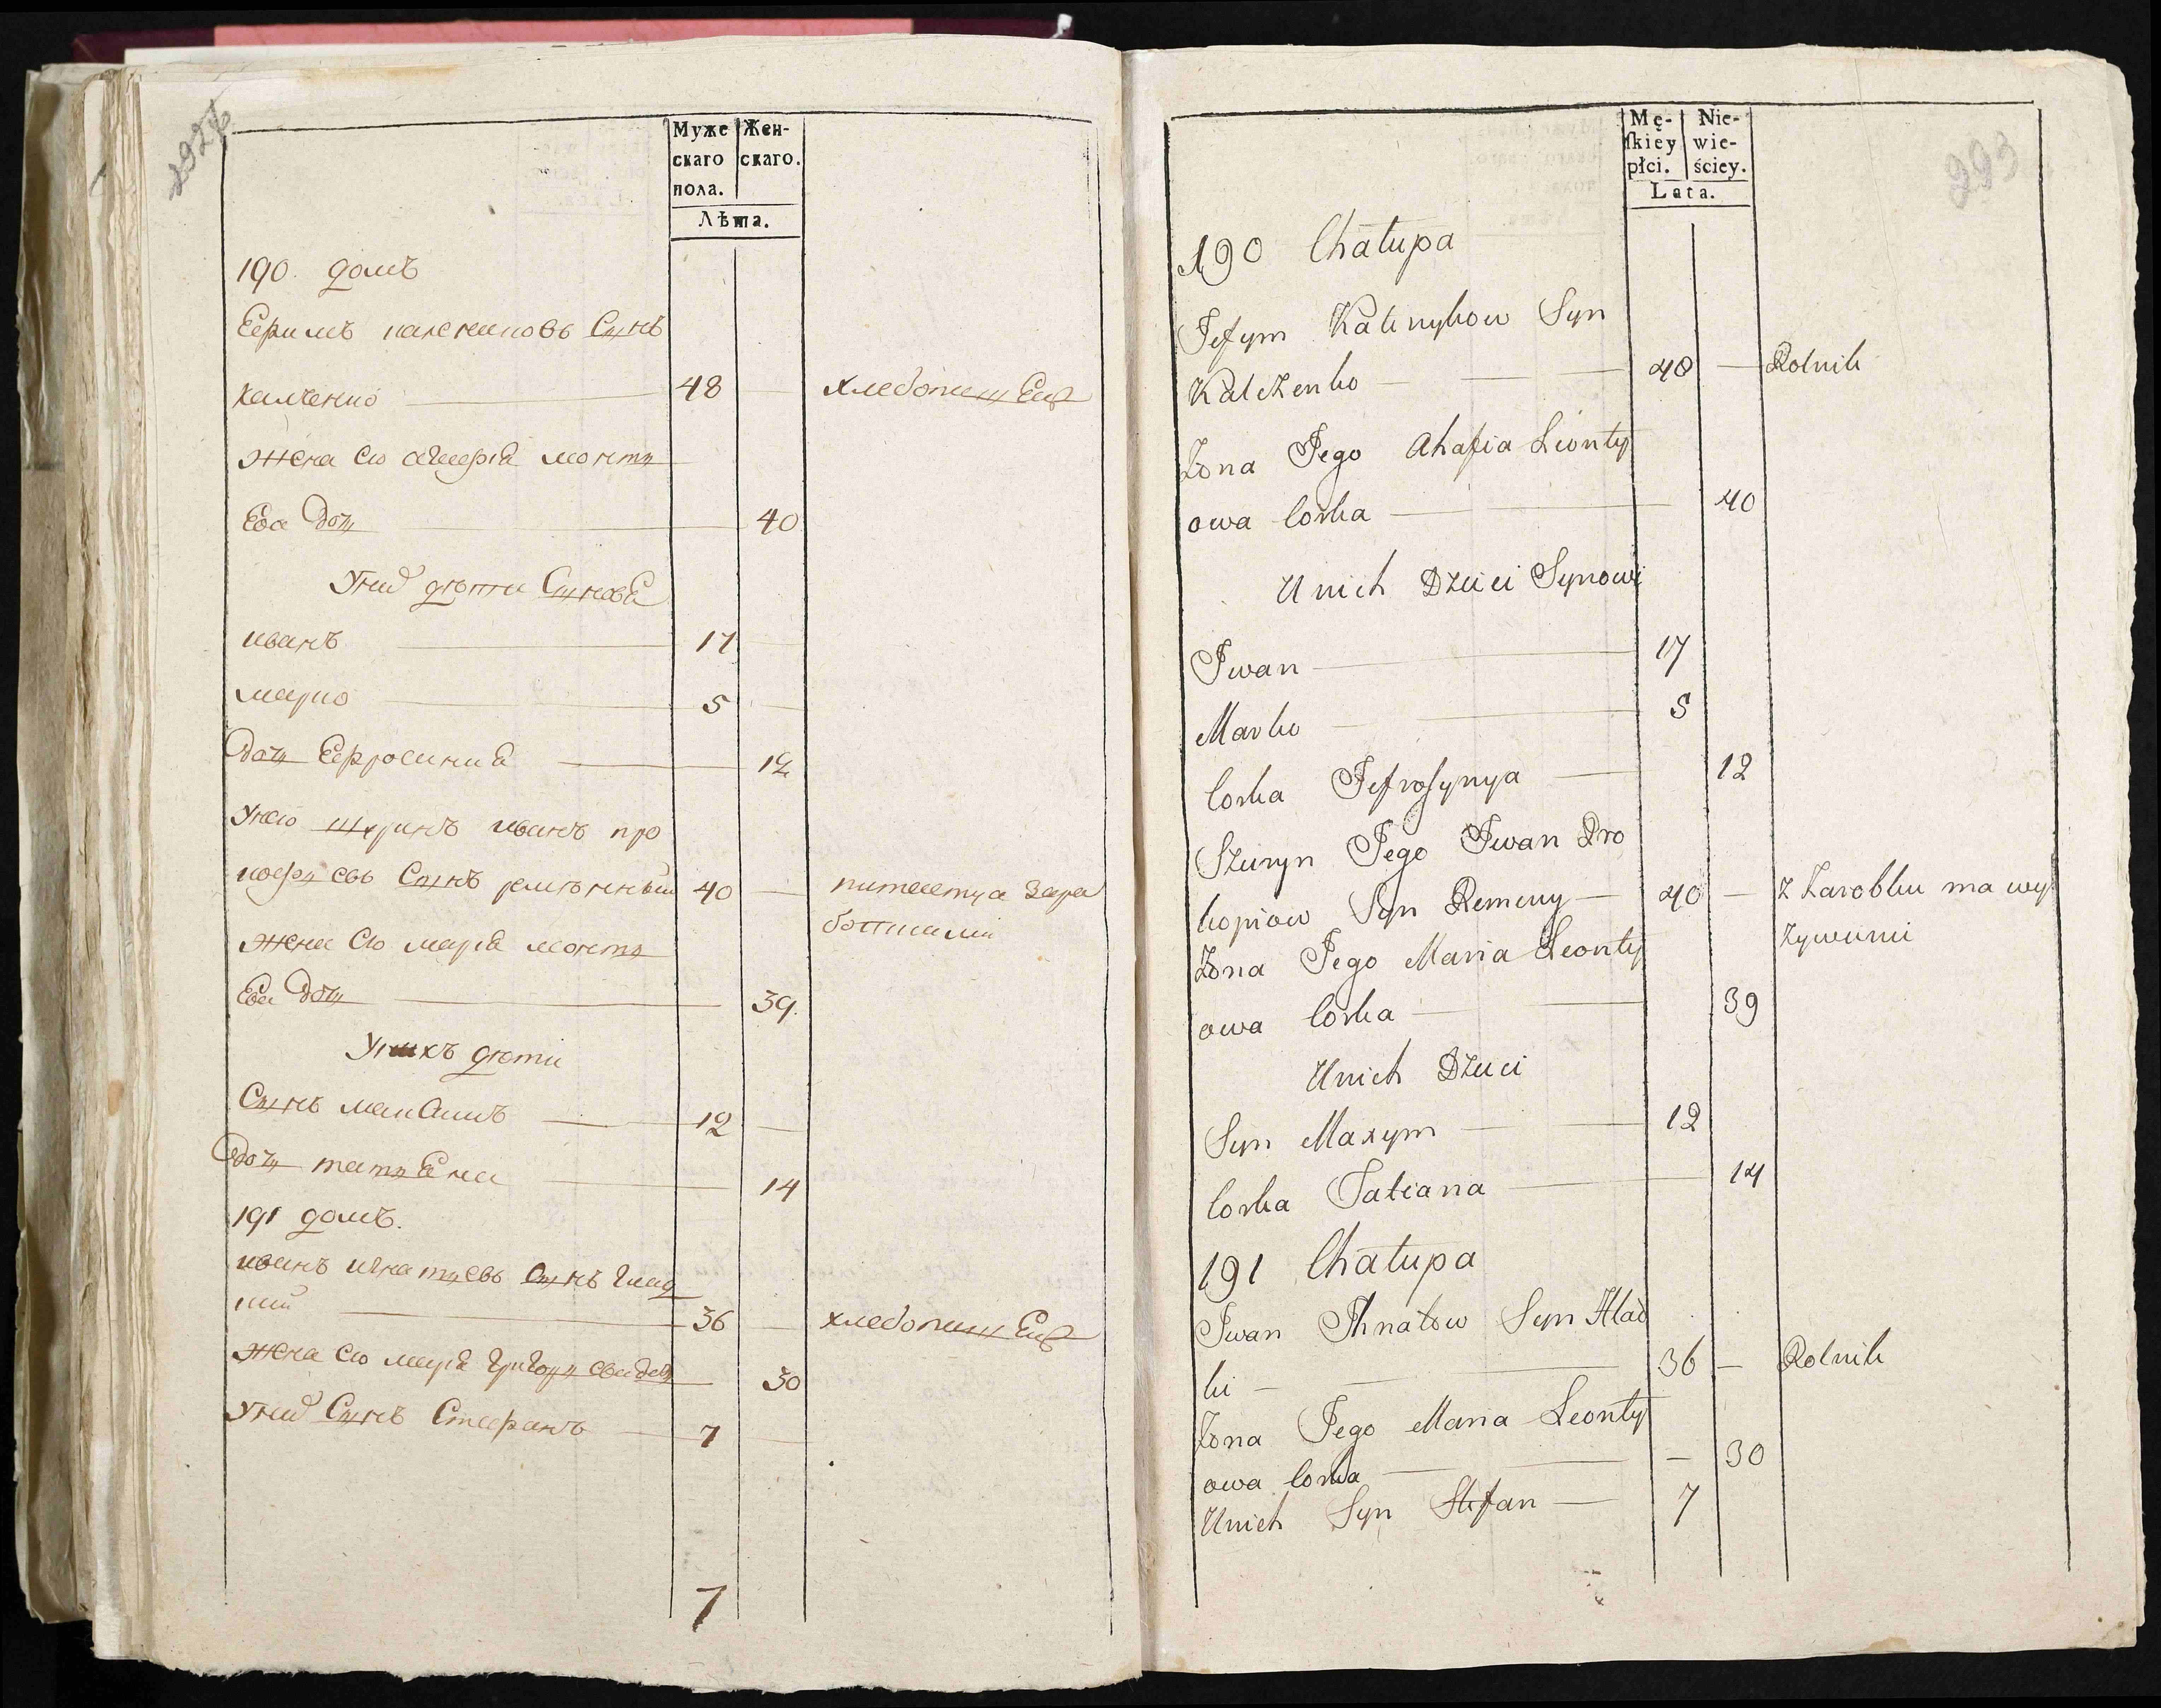 292
Муже Жен-
скаго скаго.
пола.
Лѣта.
190. домъ
Ефимъ калениковъ Сынъ
калченко 48 хлебопаш Ецъ
жена Его агафіа леонти
Ева доч 40
Уних дѣти Сыновеа
иванъ 17
марко 5
дочь Ефросиниа 12
Унего шуринъ иванъ про
кофиевъ Сынъ ременный 40 питается Зара
ботками
жена Его маріа леонти
Ева доч 39.
Унихъ дѣти
Сынъ макСимъ 12
дочь татиЕна 14
191 домъ.
иванъ игнатиевъ Сынъ глад
кий 36 хлебопаш Ецъ
жена Его маріа григориева дочь 30
Уних Сынъ Стефанъ 7
7
293
Mę- Nie-
skiey wie-
płci. ściey.
Lata.
190 Chałupa
Jefym Kalenykow Syn
Kalczenko 48 Rolnik
Zona Jego Ahafia Leonty
owa Corka 40
Unich Dzieci Synowi
Iwan 17
Marko 5
Corka Jefrosynya 12
Szuryn Jego Iwan Pro
kopiow Syn Remeny 40 z Zarobku ma wy
zywienie
Zona Jego Maria Leonty
owa Corka 39
Unich Dzieci
Syn Maxym 12
Corka Tatiana 14
191 Chałupa
Iwan Ihnatow Syn Hlad
ki 36 Rolnik
Zona Jego Maria Leonty
owa Corka 30
Unich Syn Stefan 7